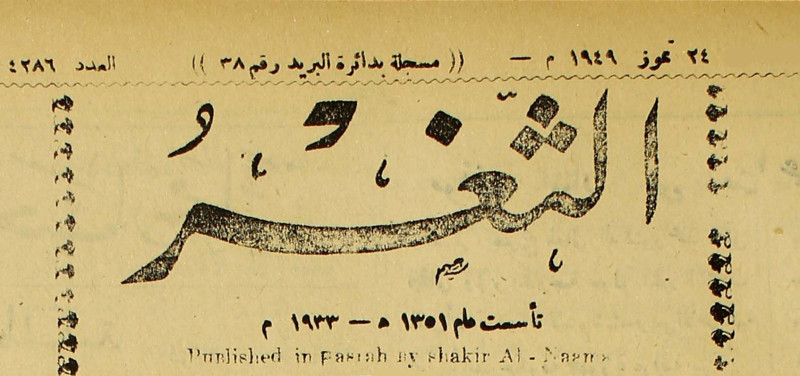 ٢٤ تموز ١٩٤٩ م — (( مسجلة بدائرة البريد رقم ٣٨ )) العدد ٤٢٨٦
الثَّغْرُ
تأسست عام ١٣٥١ ه — ١٩٣٣ م
Published in Basrah by shakir Al - Naama